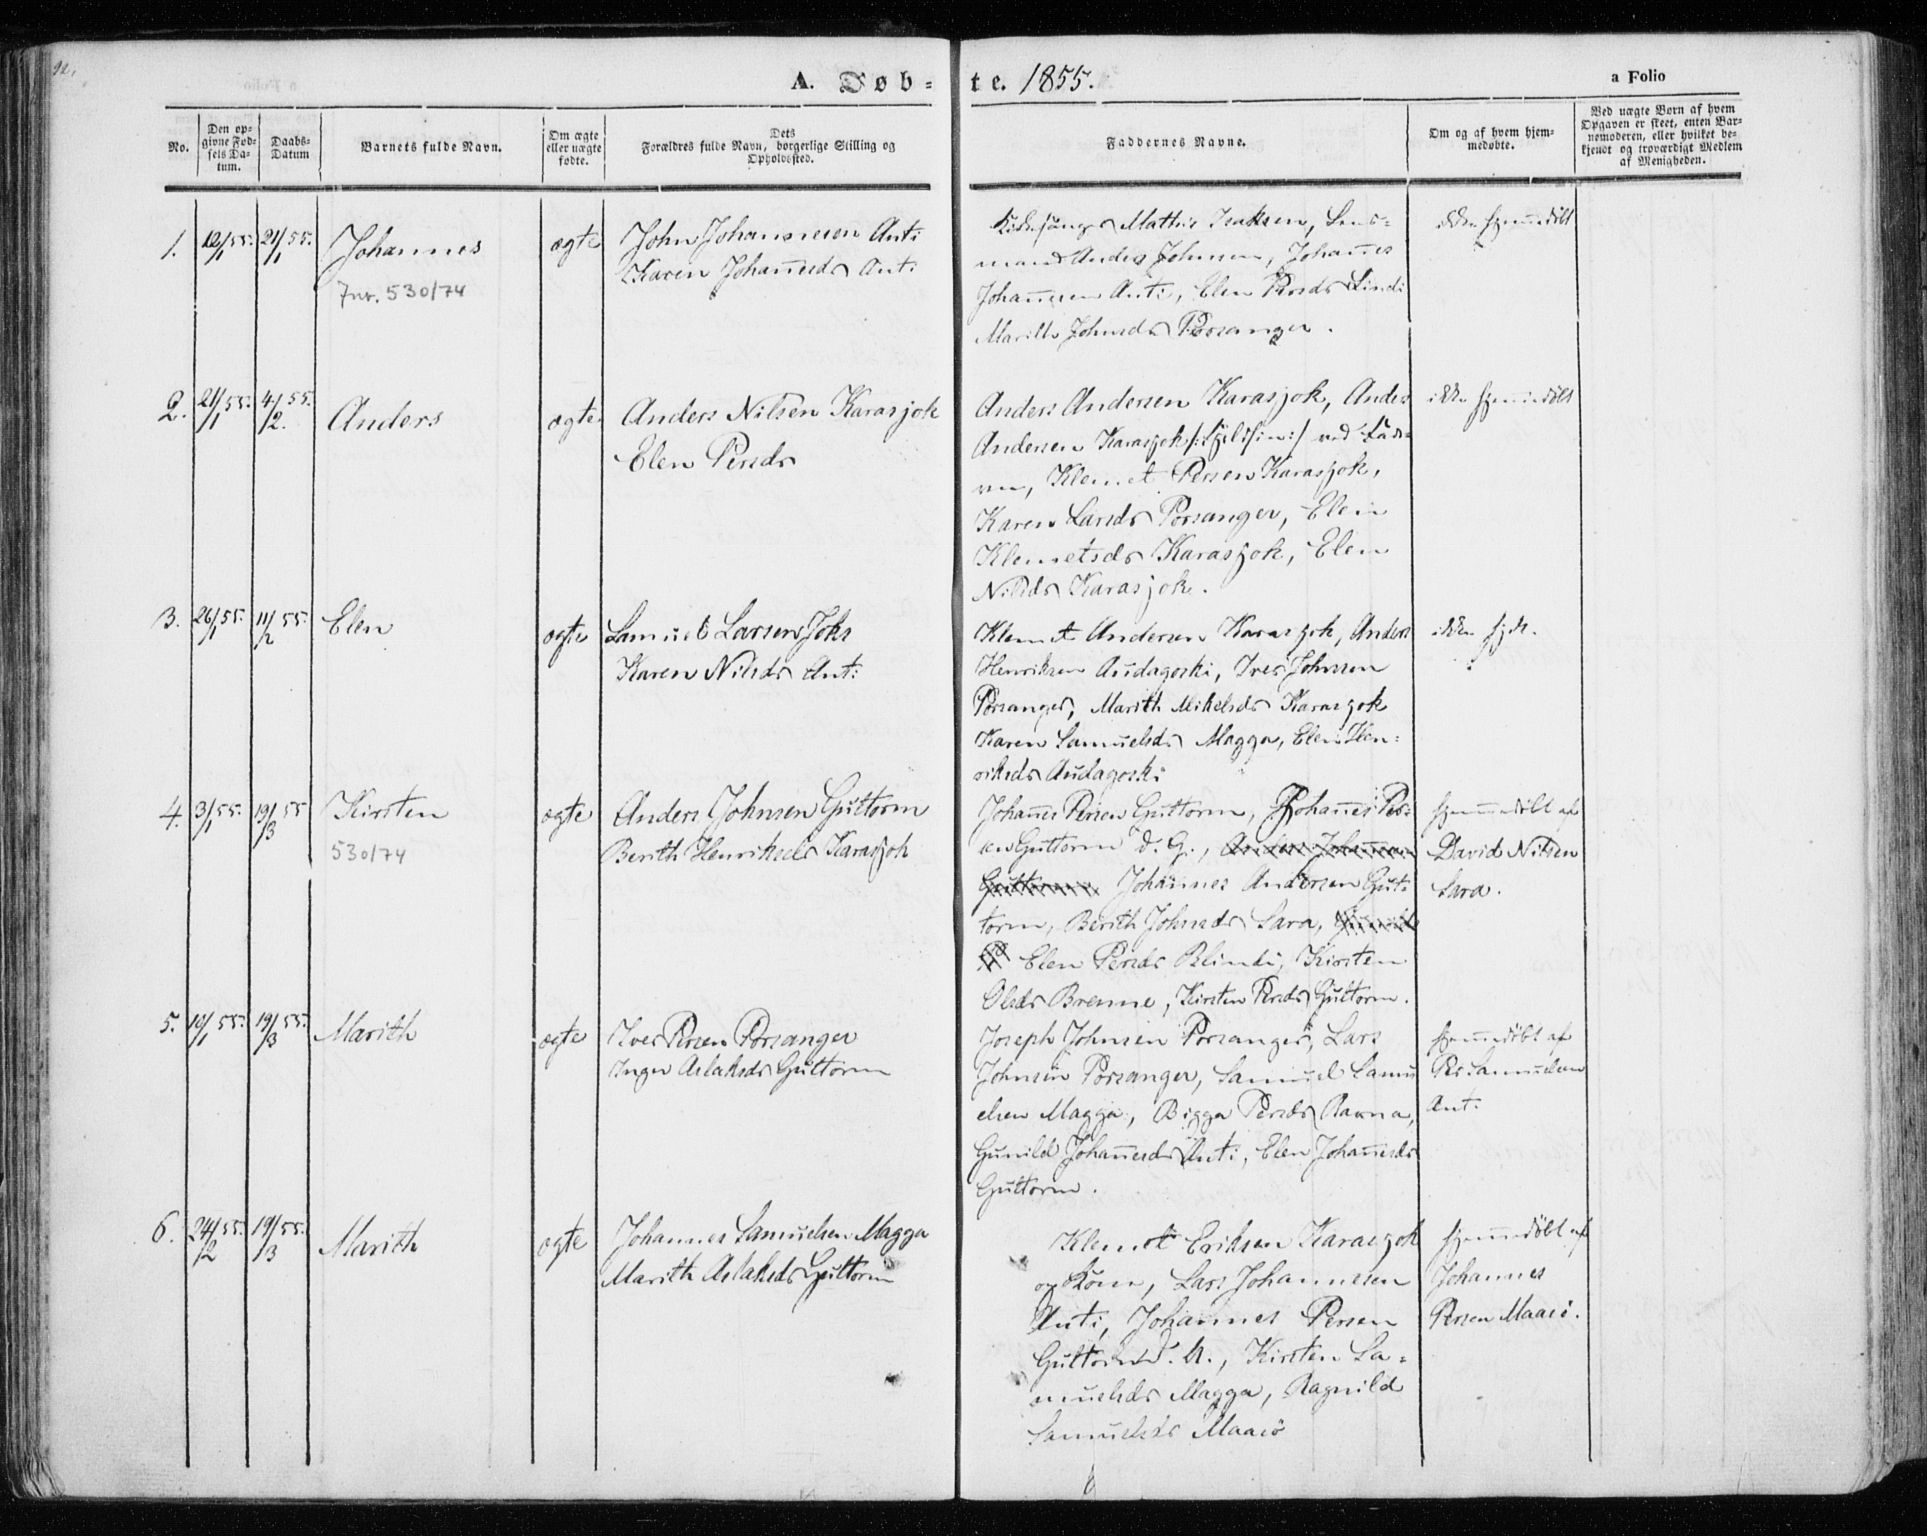 92.
A. Døb-
te. 1855.
a Folio
No.
Den op-
givne Fød-
sels Da-
tum.
Daabs-
Datum
Barnets fulde Navn.
Om ægte
eller uægte
fødte.
Dets
Forældres fulde Navn, borgerlige Stilling og
Opholdssted.
Faddernes Navne.
Om og af hvem hjem-
medøbte.
Ved uægte Børn af hvem
Opgaven er skeet, enten Bar-
nemoderen, eller hvilket be-
kjendt og troværdigt Medlem
af Menigheden.
1. 12/1 55. 21/1 55.
Johannes
Jnr. 530/74
ægte
John Johannesen Anti
Karen Johan̄esdr Anti
Kirkesanger Mathis Isaksen, Lens-
mand Anders Johnsen, Johan̄es
Johan̄esen Anti, Elen Persdr
Marith Johnsdr Porsanger.
ikke hjem̄edöbt
2. 21/1 55. 4/2. 55.
Anders
ægte
Anders Nilsen Karasjok
Elen Persdr
Anders Andersen Karasjok, Anders
Andersen Karasjok ved
Klemet Persen Karasjok,
Karen Larsdr Porsanger, Elen
Klemetsdr Karasjok, Elen
Nilsdr Karasjok.
ikke hjem̄edöbt
3. 26/1 55. 11/2 55.
Elen
ægte
Samuel Larsen Joks
Karen Nilsdr Anti
Klemet Andersen Karasjok, Anders
Henriksen Audagoski, Iver Johnsen
Porsanger, Marith Mikelsdr Karasjok
Karen Samuelsdr Magga, Elen Hen-
riksdr Audagoski
ikke hjdt.
4. 3/1 55. 19/3 55
Kirsten
530/74
ægte
Anders Johnsen Guttorm
Berith Henriksdr Karasjok
Johan̄es Persen Guttorm, Johan̄es Pers-
en Guttorm d. G., Anders Johannesen
Guttorm Johannes Andersen Gut-
torm, Berith Johnsdr Sara,
Elen Persdr Blindi, Kirsten
Olsdr Brenne, Kirsten Persdr Guttorm.
hjem̄edöbt af
David Nilsen
Sara.
5. 10/1 55. 19/3 55.
Marith
ægte
Iver Persen Porsanger
Inger Aslaksdr Guttorm
Joseph Johnsen Porsanger, Lars
Johnsen Porsanger, Samuel Samu
elsen Magga, Bigga Persdr Ravna,
Gunild Johan̄esdr Anti, Elen Johan̄esdr
Guttorm.
hjem̄edöbt af
Per Samuelsen
Anti
6. 24/2 55. 19/3 55.
Marith
ægte
Johannes Samuelsen Magga
Marith Aslaksdr Guttorm
Klemet Eriksen Karasjok
og Kone, Lars Johannesen
Anti, Johannes Persen
Guttorm d. U., Kirsten Sa-
muelsdr Magga, Ragnild
Samuelsdr Maasö
hjem̄edöbt af
Johannes
Persen Maasö.